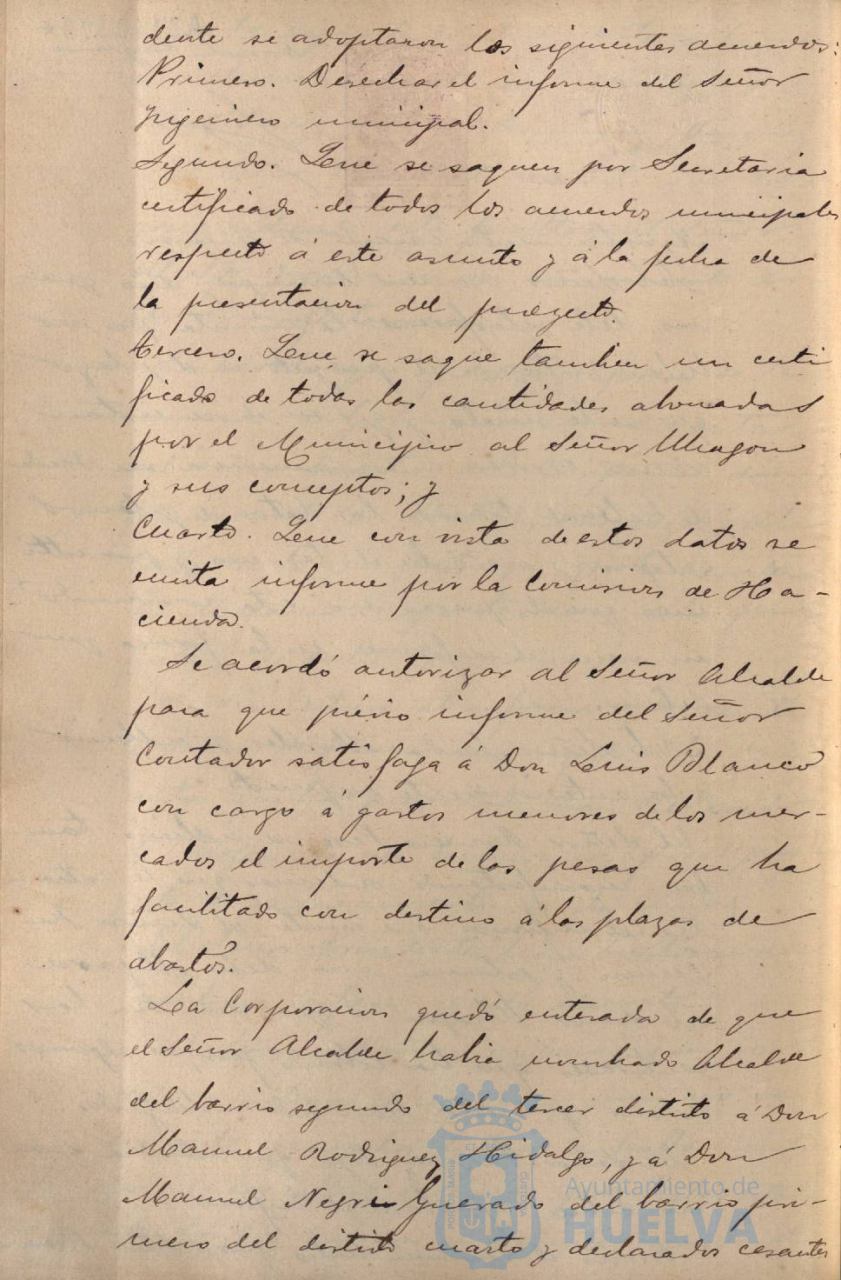 dente se adoptaron los siguientes acuerdos:
Primero. Desechar el informe del Señor
Ingeniero municipal.
Segundo. Que se saquen por Secretaria
certificado de todos los acuerdos municipales
respecto á este asunto y á la fecha de
la presentacion del proyecto.
tercero. Que se saque tambien un certi
ficado de todas las cantidades abonadas
por el Municipio al Señor
y sus conceptos; y
Cuarto. Que con vista de estos datos se
emita informe por la Comision de Ha-
cienda.
Se acordó autorizar al Señor Alcalde
para que prévio informe del Señor
Contador satisfaga á Don Luis Blanco
con cargo á gastos menores de los mer-
cados el importe de las pesas que ha
facilitado con destino á las plazas de
abastos.
La Corporacion quedó enterada de que
el Señor Alcalde habia nombrado Alcalde
del barrio segundo del tercer distrito á Don
Manuel Rodriguez Hidalgo, y á Don
Manuel Negri Guerado del barrio pri-
mero del distrito cuarto y declarados cesantes
Ayuntamiento de
HUELVA